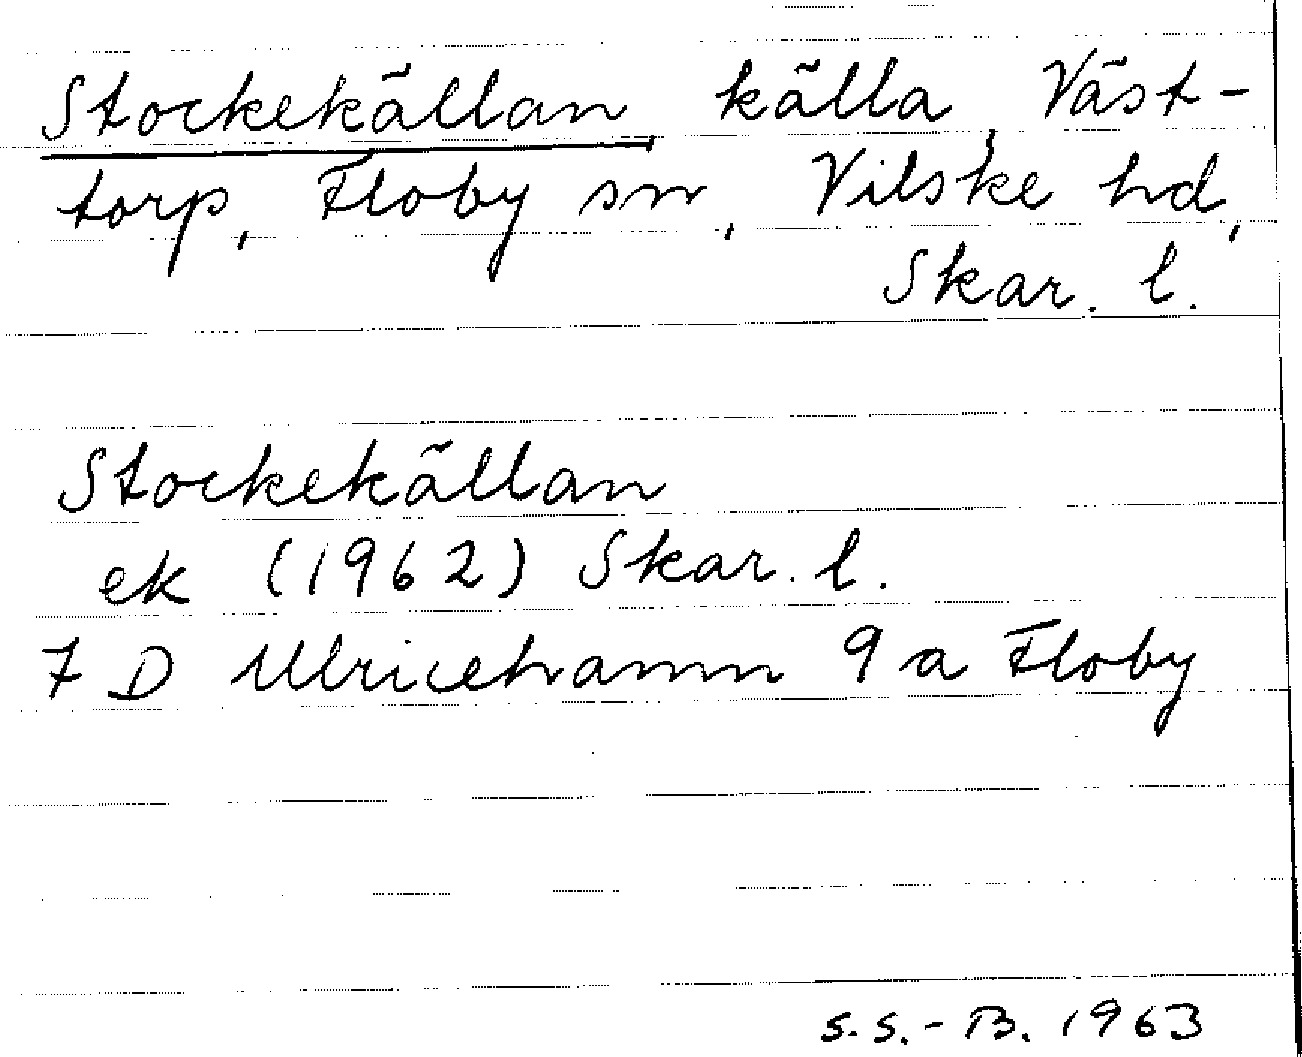 Stockekällan, källa, Väst-
torp, Floby sn, Vilske hd,
Skar. l.
Stockekällan
ek (1962) Skar. l.
7 D Ulricehamn 9 a Floby
S.S.-B. 1963